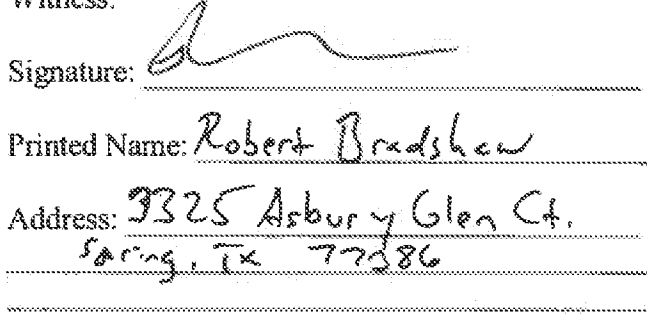 Witness:
Signature:
Printed Name: Robert Bradshaw
Address: 3325 Asbury Glen Ct.
Spring, TX 77386